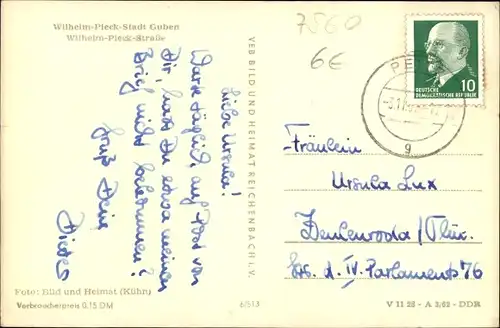 Wilhelm-Pieck-Stadt Guben
Wilhelm-Pieck-Straße
7560
6€
Liebe Ursula!
Warte täglich auf Post von
Dir, hast Du etwa meinen
Brief nicht bekommen?
Gruß Dein
VEB BILD UND HEIMAT REICHENBACH I. V.
DEUTSCHE
DEMOKRATISCHE REPUBLIK
10
g
Fräulein
Ursula Lux
Zeulenroda/Thür.
Str. d. IV. Parlaments 76
Foto: Bild und Heimat (Kühn)
Verbraucherpreis 0,15 DM
6/513
V 11 28 - A 3/62 - DDR